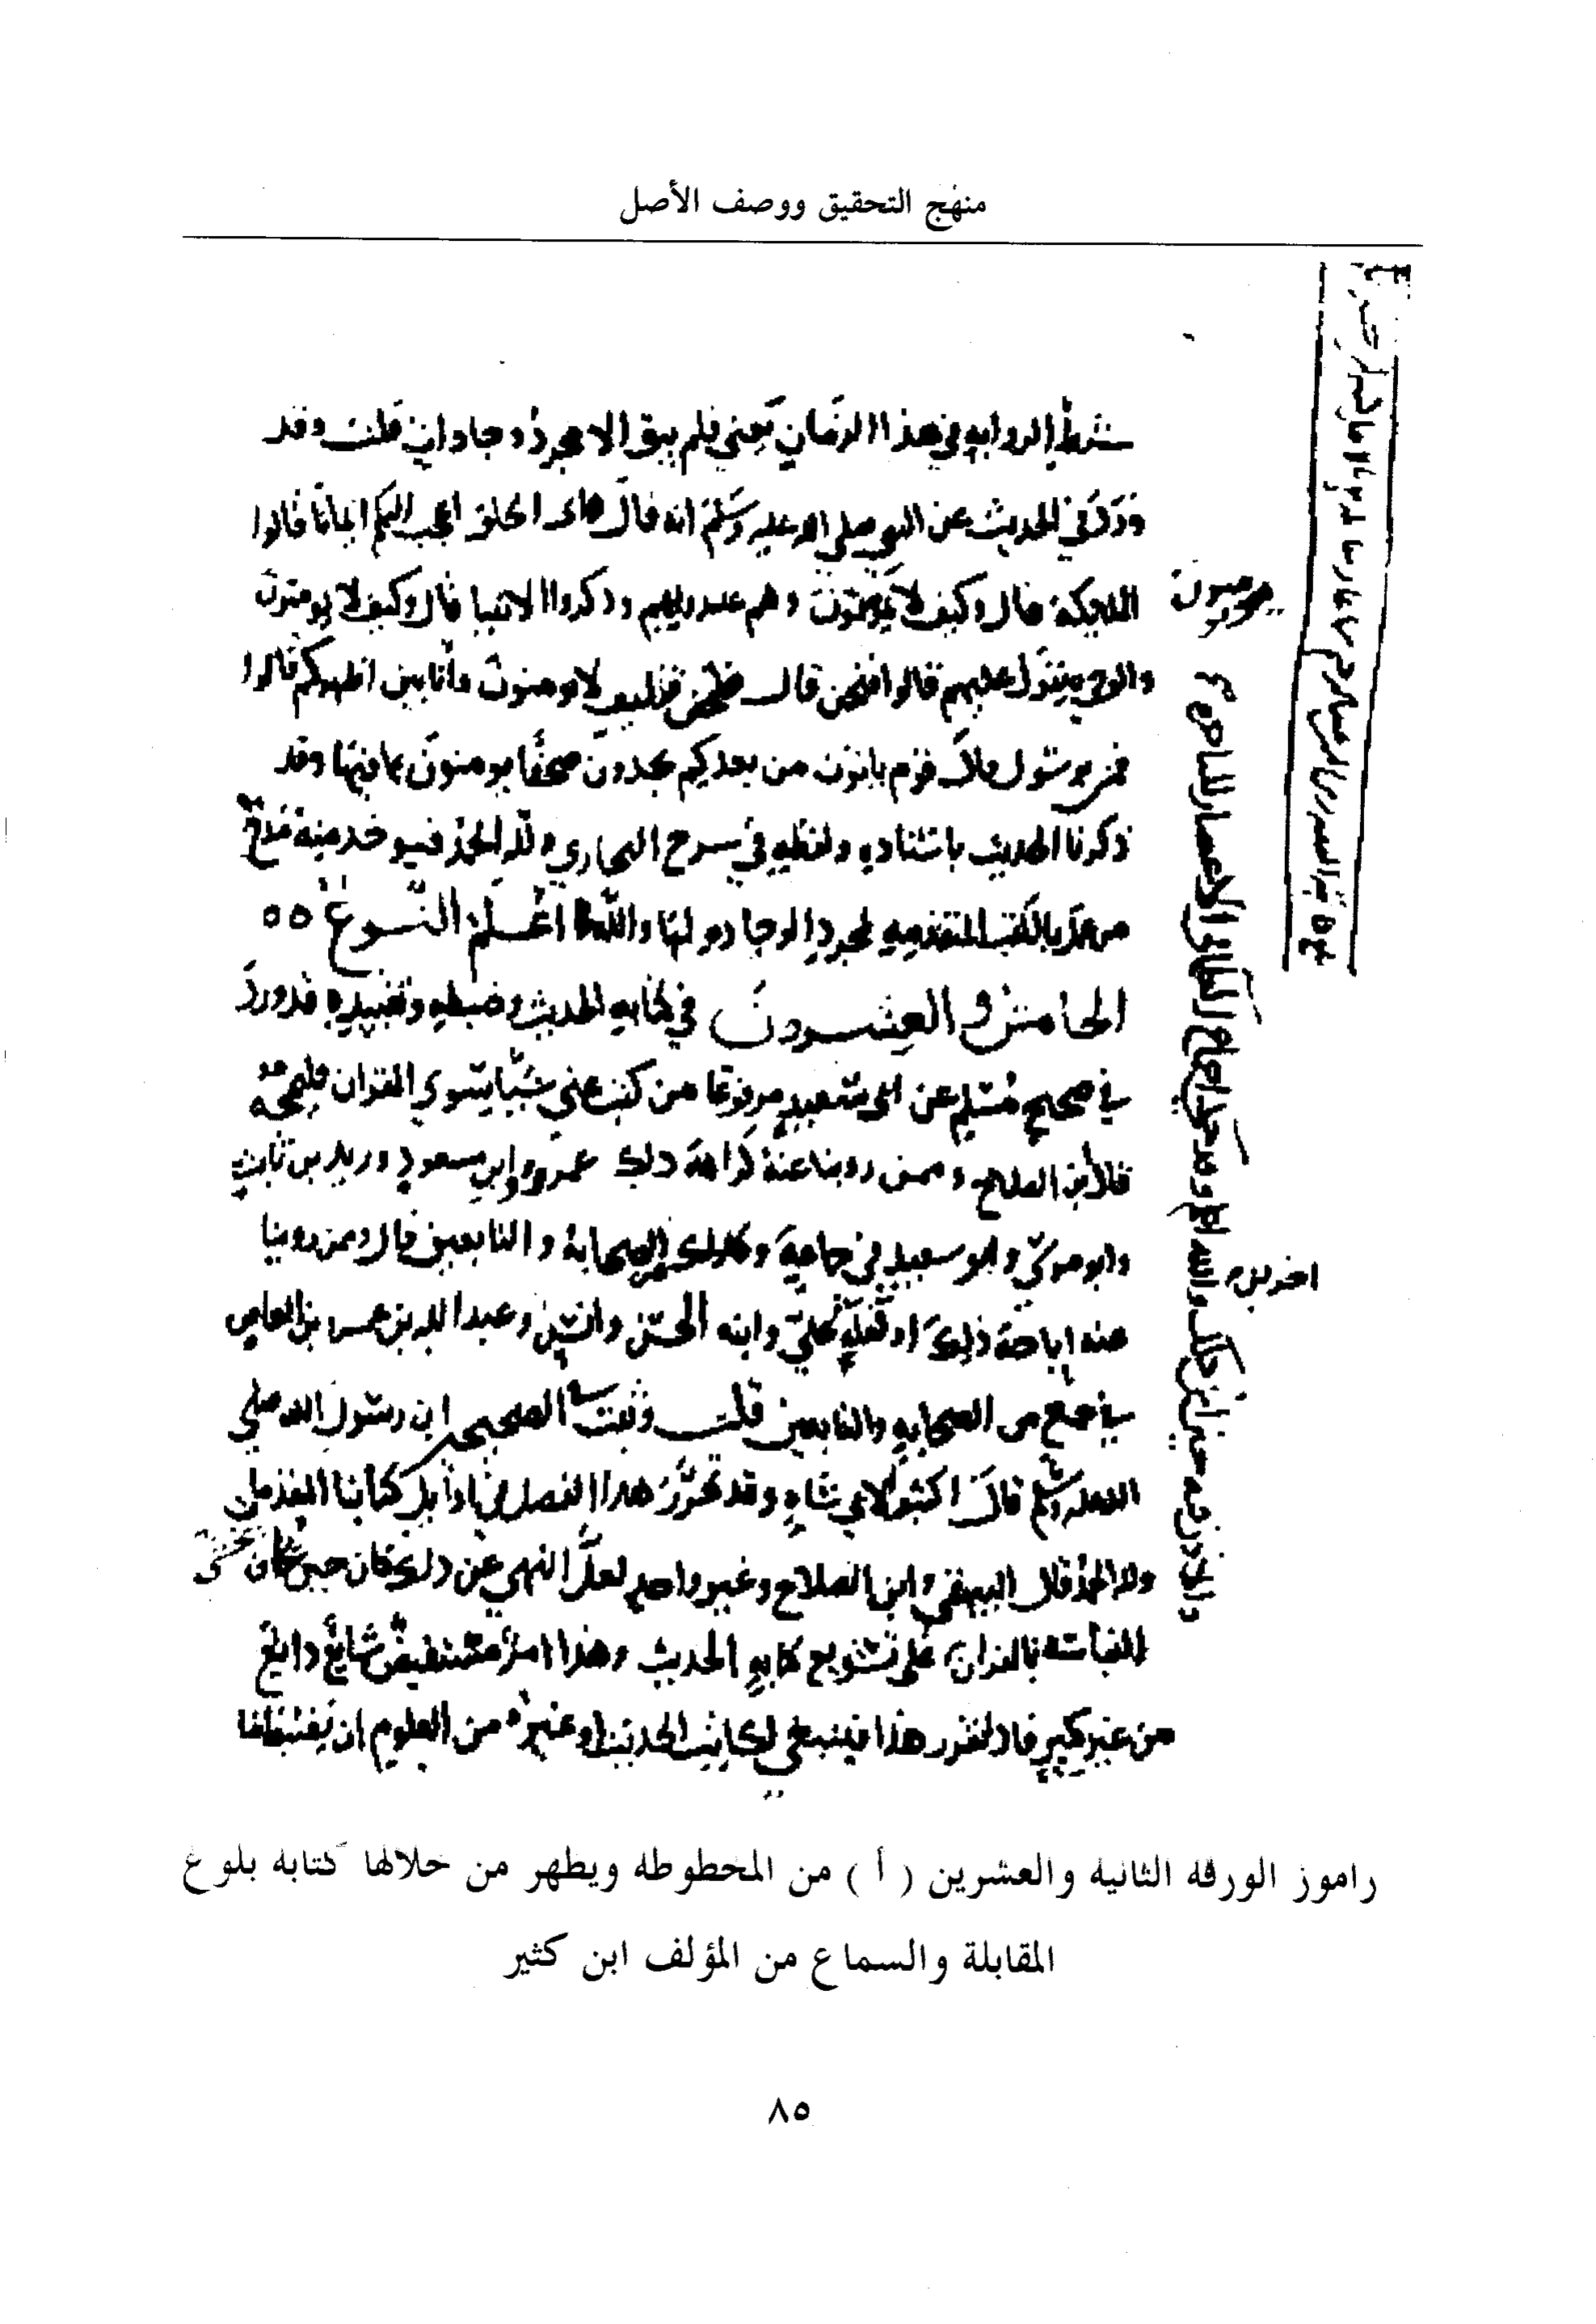 منهج التحقيق ووصف الأصل
شرط الروايه في هذا الزمان يعني فلم يبق الا مجرد وجادات قلت وقد
ورد في الحديث عن النبي صلى الله عليه وسلم انه قال اي الخلق اعجب اليكم ايمانا قالوا
الملايكة قال وكيف لا يومنون وهم عند ربهم وذكروا الانبيا قال وكيف لا يومنون
يومنون
والوحي ينزل عليهم قالوا فنحن قال وكيف لا تومنون وانا بين اظهركم قالوا
فمن يرسول الله قال قوم ياتون من بعدكم يجدون صحفا يومنون بما فيها وقد
ذكرنا الحديث باسناده ولفظه في شرح البخاري ولله الحمد فيوخذ منه مدح
من عمل بالكتب المتقدمه لمجرد الوجاده لها والله اعلم النوع
الخامس والعشرون في كتابه الحديث وضبطه وتقييده قد ورد
في صحيح مسلم عن ابي سعيد مرفوعا من كتب عني شيا سوي القران فليمحه
قال ابن الصلاح وممن روينا عنه كراهة ذلك عمر وابن مسعود وزيد بن ثابت
وابو موسى وابو سعيد في جماعة من الصحابة والتابعين قال وممن روينا
اخرين
عنه اباحة ذلك او فعله علي وابنه الحسن وانس وعبدالله بن عمرو بن العاص
في جمع من الصحابه والتابعين قلت وثبت في الصحيحين ان رسول الله صلى
الله عليه وسلم قال اكتبوا لابي شاه وقد تحرر هذا الفصل في اوايل كتابنا المقدمات
ولله الحمد قال البيهقي وابن الصلاح وغير واحد لعل النهي عن ذلك كان حين يخشى
التباسه بالقران
على تسويغ كتابه الحديث وهذا امر مستفيض شايع ذايع
من غير نكير فاذا تقرر هذا فينبغي لكاتب الحديث او غيره من العلوم ان
وقد حكي اجماع العلماء في الاعصار المتاخرة
راموز الورقة الثانية والعشرين ( أ ) من المخطوطة ويظهر من خلالها كتابة بلوغ
المقابلة والسماع من المؤلف ابن كثير
٨٥